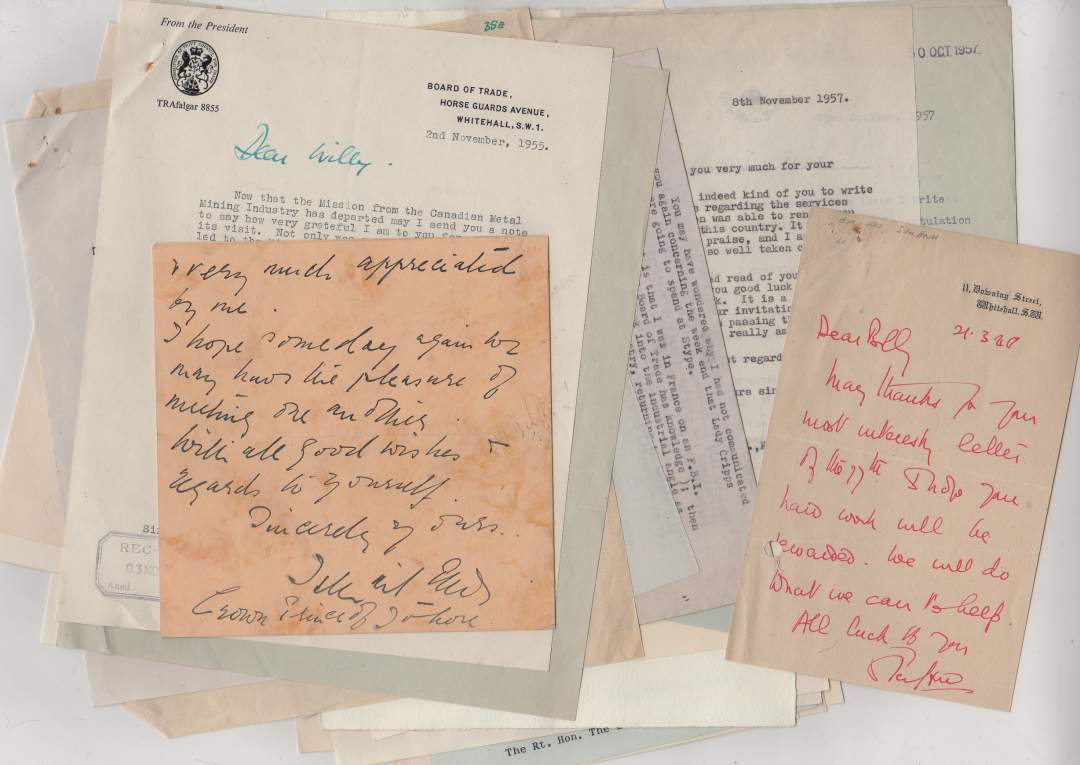 From the President
TRAfalgar 8855
BOARD OF TRADE,
HORSE GUARDS AVENUE,
WHITEHALL, S.W.1.
2nd November, 1955.
Dear Willy.
Now that the Mission from the Canadian Metal
Mining Industry has departed may I send you a note
to say how very grateful I am to you
its visit. Not only was
led to the
Sin
REC
03NO
Ansd
very much appreciated
by me.
I hope someday again we
may have the pleasure of
meeting one another.
With all good wishes &
regards to yourself.
Sincerely yours.
Crown Prince of Johore
35a
0 OCT 1957
8th November 1957.
1957
you very much for your
indeed kind of you to write
regarding the services
n was able to ren
this country. It
praise, and I a
so well taken c
d read of you
you good luck
k. It is a
ur invitatio
passing th
really as
t regard
urs sin
You may have wondered why I had not communicated
you again concerning the week end that Lady Cripps
are going to spend at Stype.
is that I was in France on an F.B.I.
Board of Trade has knowledge); then
into the industrial angle
ntry, returnin
11, Downing Street,
Whitehall, S.W.
21.3.
Dear Polly
Many thanks for your
most interesting letter
of the 7th. I hope your
hard work will be
rewarded. We will do
what we can to help.
All luck to you
The Rt. Hon. The